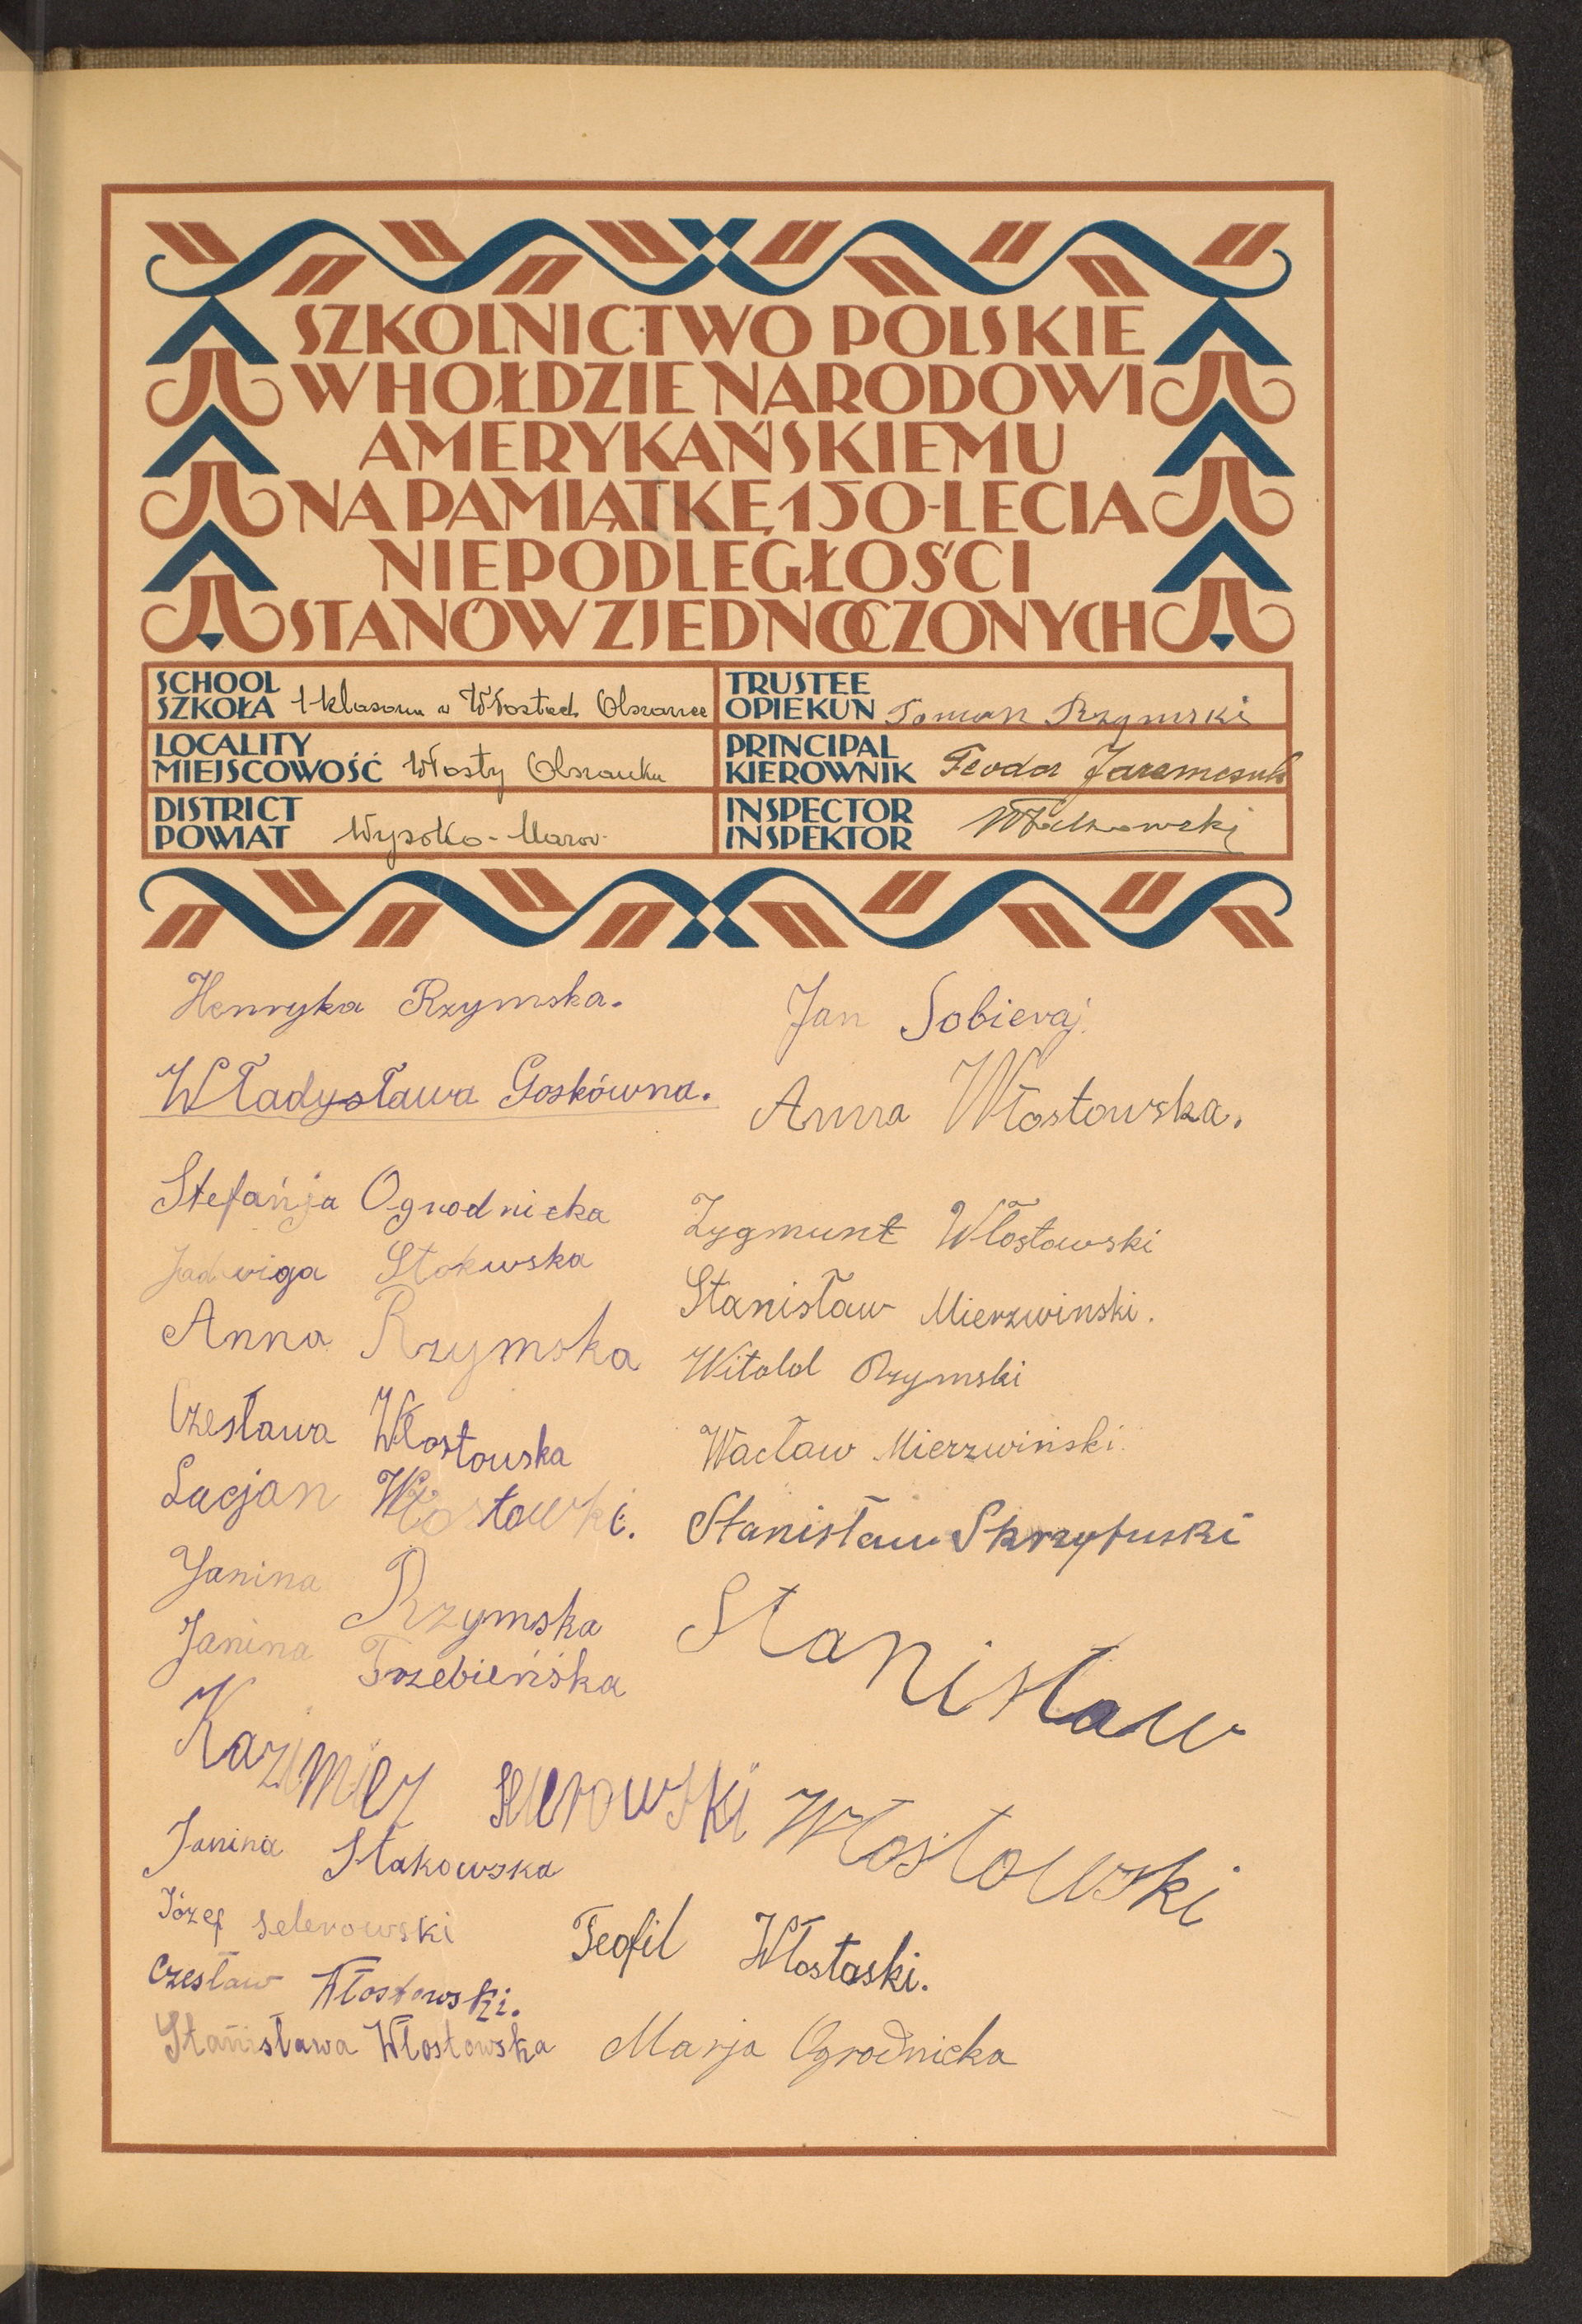 SZKOLNICTWO POLSKIE
W HOŁDZIE NARODOWI
AMERYKAŃSKIEMU
NA PAMIĄTKĘ 150-LECIA
NIEPODLEGŁOŚCI
STANÓW ZJEDNOCZONYCH
SCHOOL
SZKOŁA 1-klasowa w Włostach Olszance
TRUSTEE
OPIEKUN Roman Rzymski
LOCALITY
MIEJSCOWOŚĆ Włosty Olszanka
PRINCIPAL
KIEROWNIK Teodor Jaremczuk
DISTRICT
POWIAT Wysoko-Mazow.
INSPECTOR
INSPEKTOR
Henryka Rzymska.
Władysława Goskówna.
Stefańja Ogrodnicka
Jadwiga Stokowska
Anna Rzymska
Czesława Włostowska
Lucjan Włostowski.
Janina Rzymska
Janina Trzebieńska
Kazimierz Selerowski
Janina Stakowska
Józef Selerowski
Czesław Włostowski.
Stanisława Włostowska
Jan Sobieraj.
Anna Włostowska.
Zygmunt Włostowski
Stanisław Mierzwinski.
Witold Rzymski
Wacław Mierzwiński.
Stanisław Skrzypuski
Stanisław
Włostowski
Teofil Włostoski.
Marja Ogrodnicka